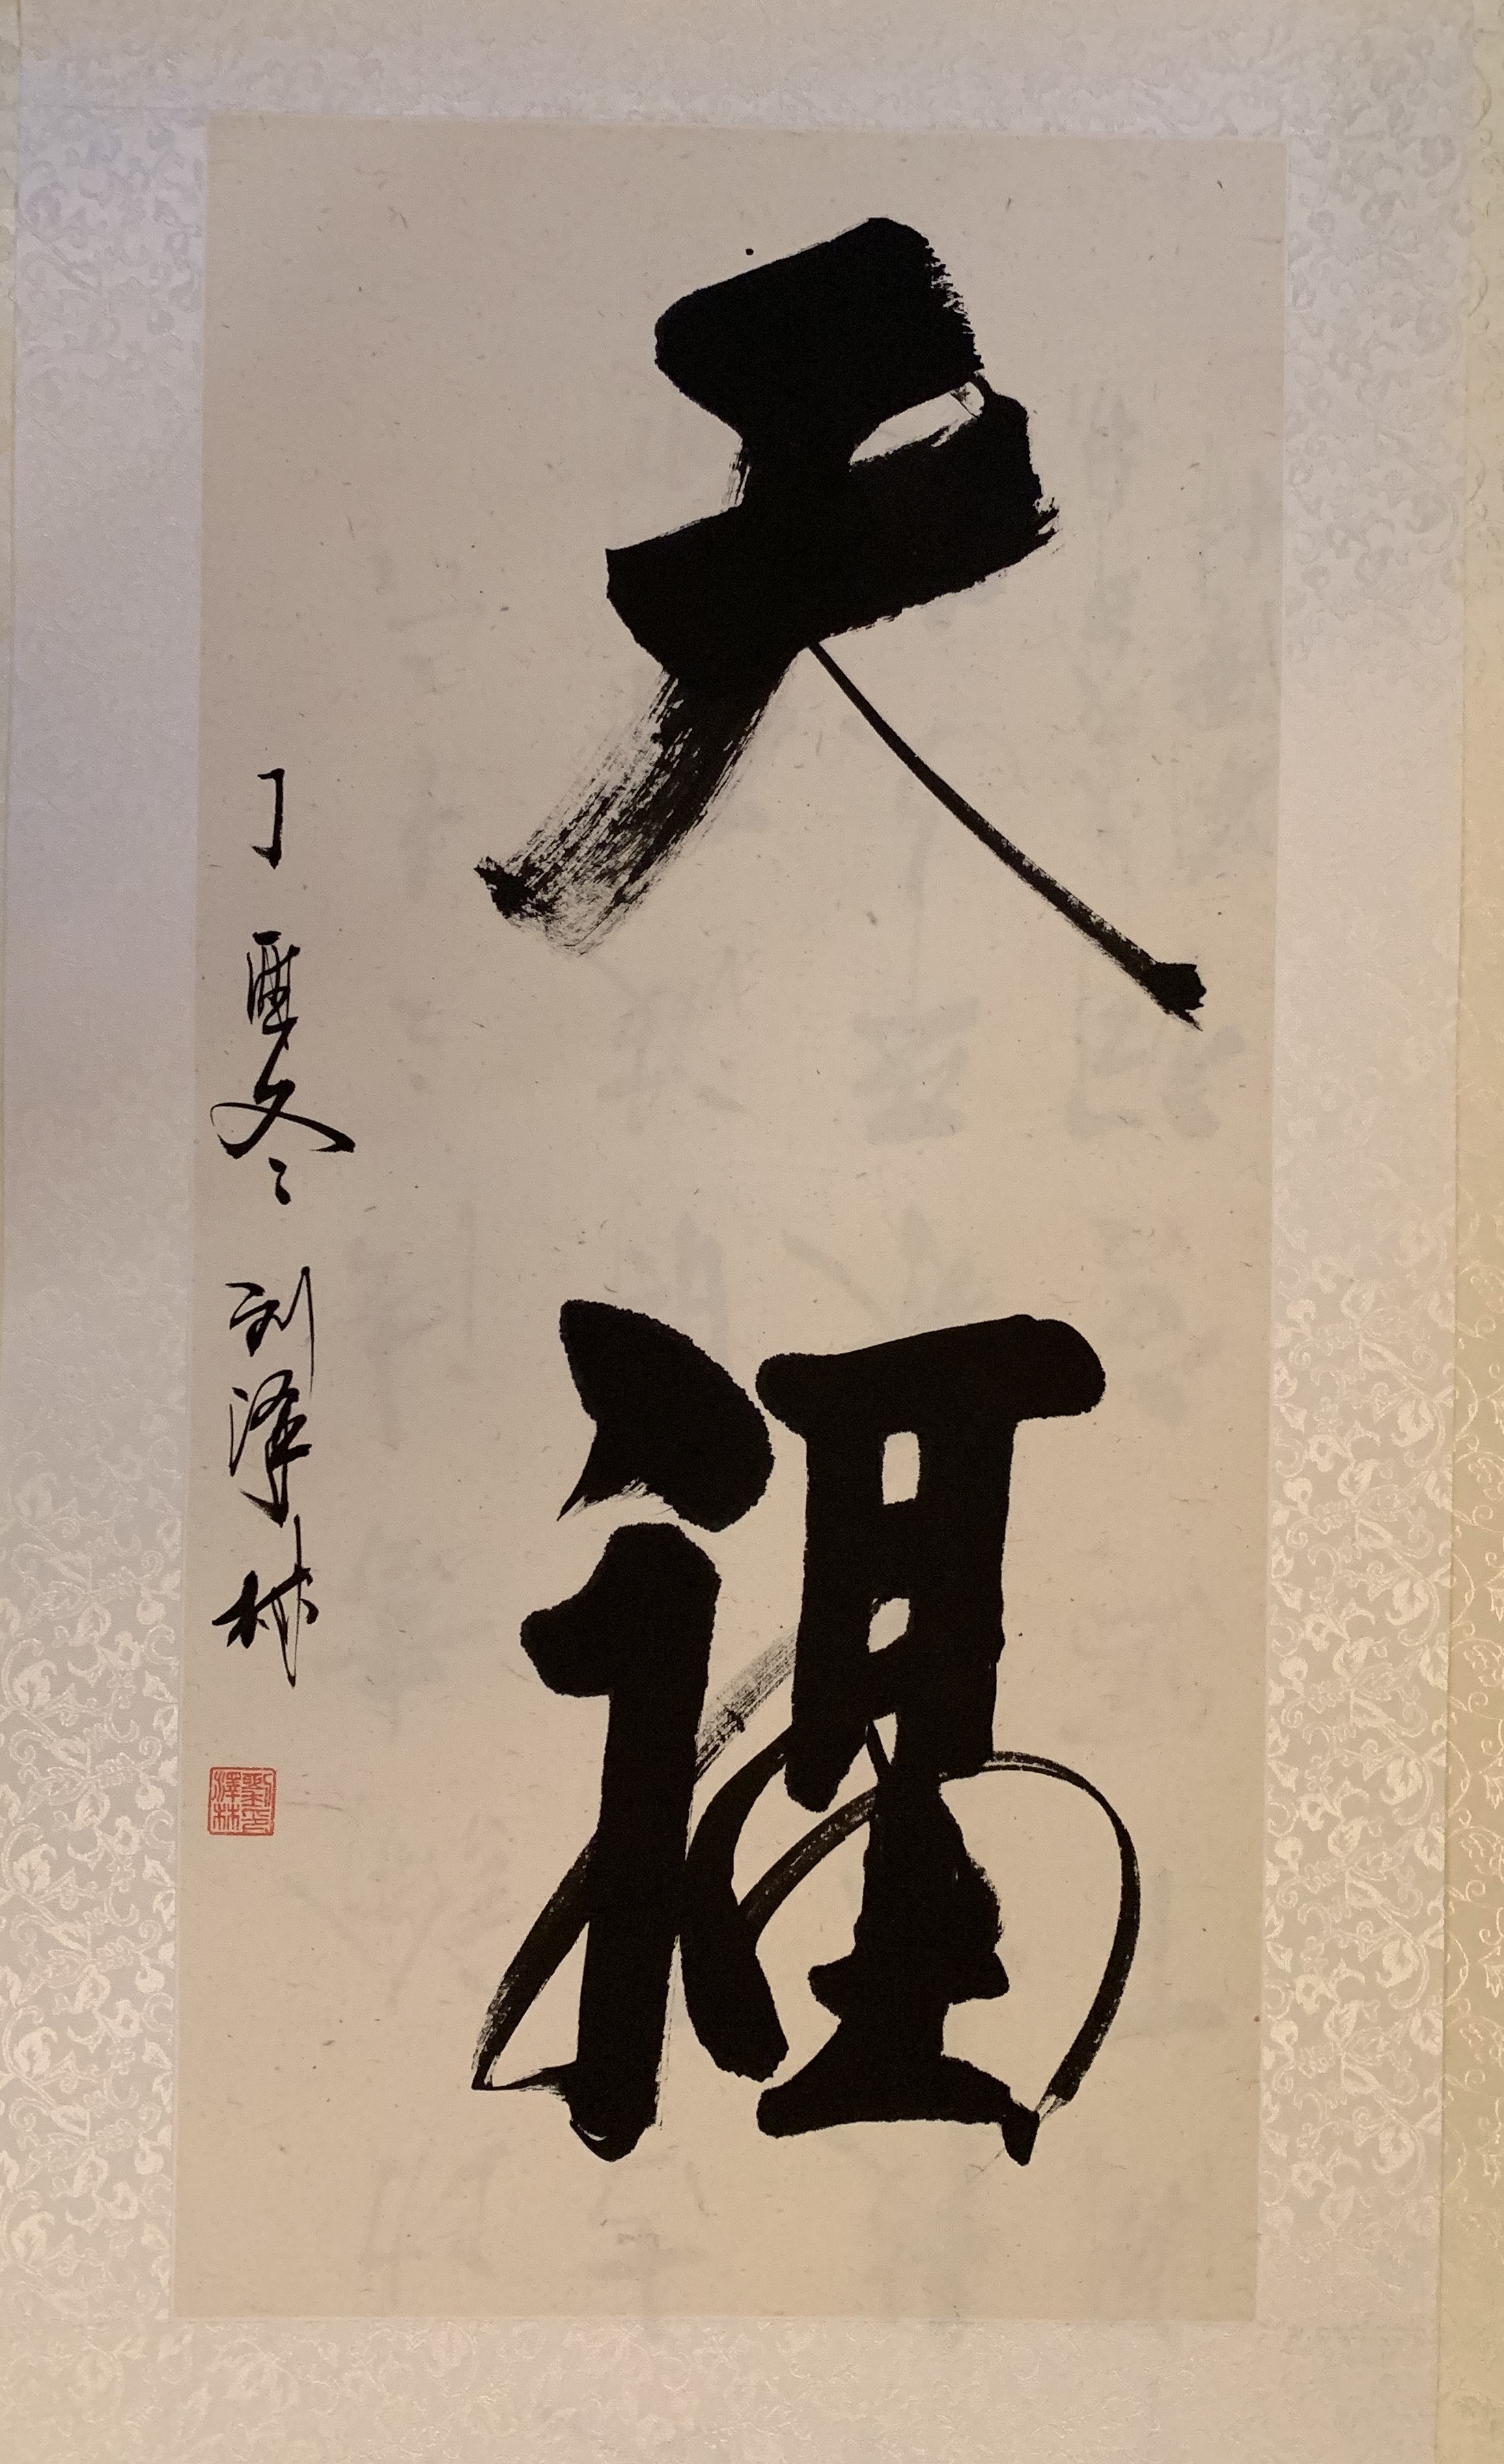 天福
丁酉冬 刘泽林
劉印
澤林